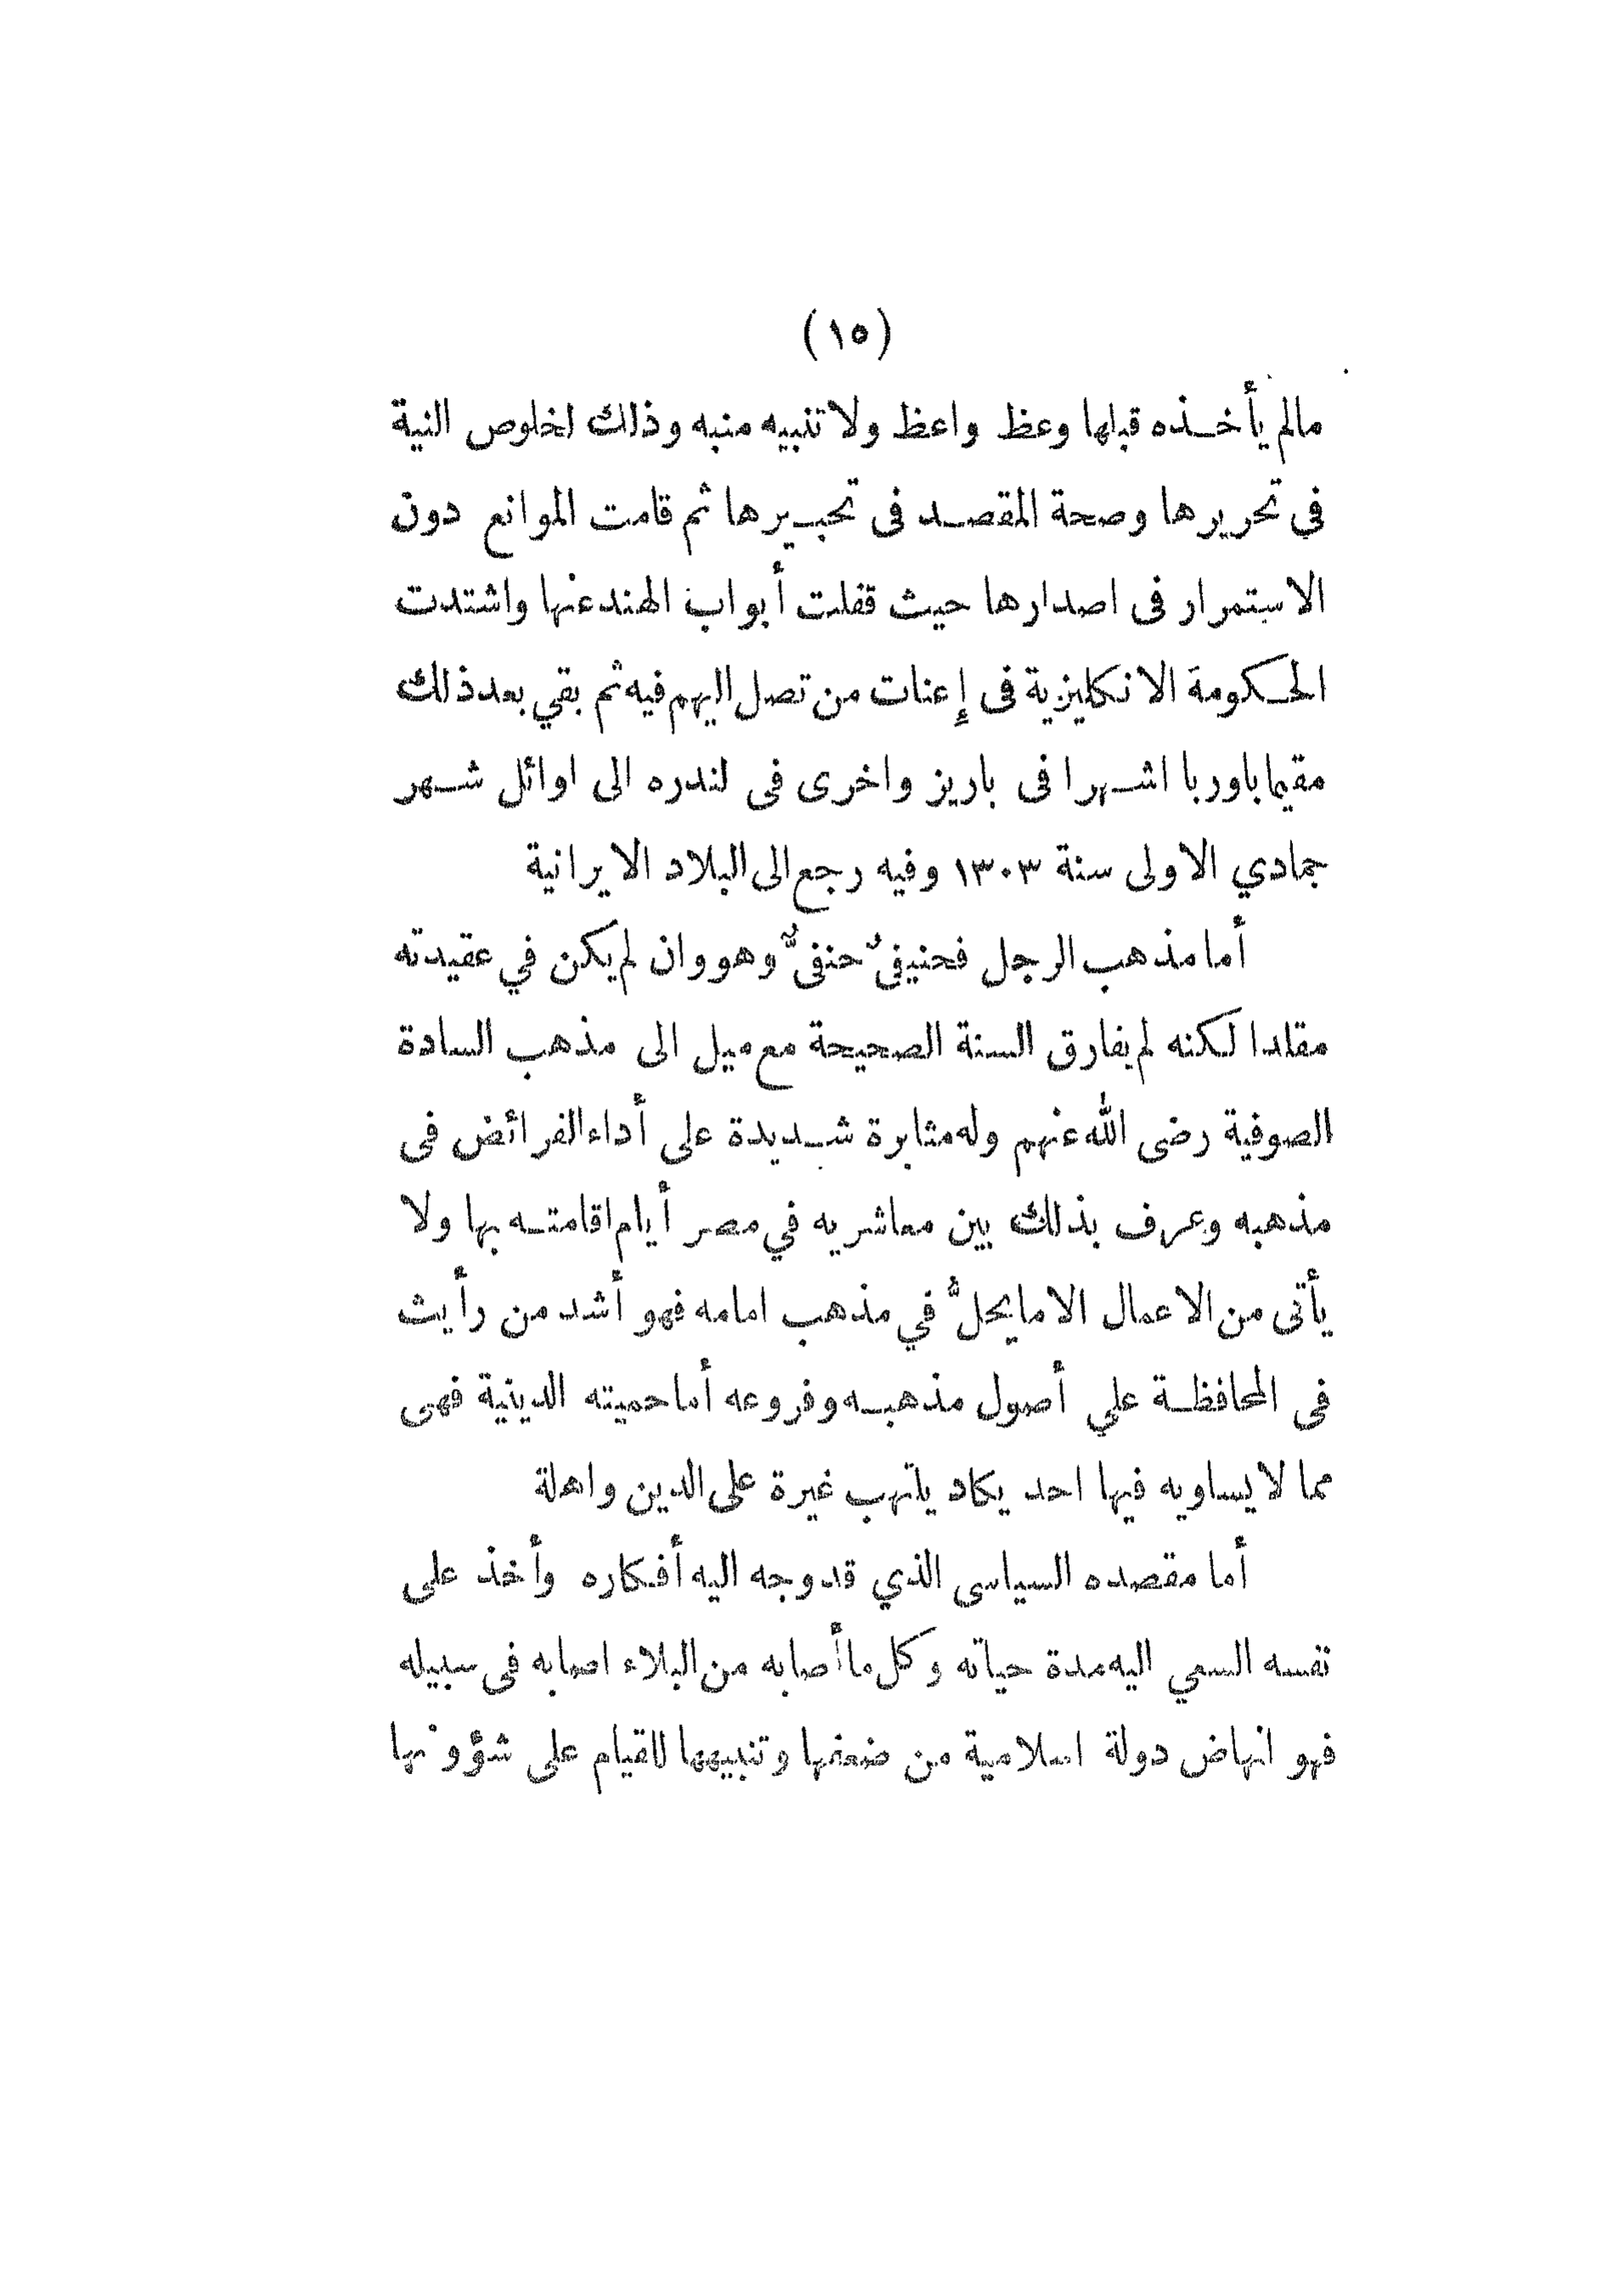 (١٥)
مالم يأخذه قبلها وعظ واعظ ولا تنبيه منبه وذلك لخلوص النية
في تحريرها وصحة المقصد فى تحبيرها ثم قامت الموانع دون
الاستمرار فى اصدارها حيث قفلت أبواب الهند عنها واشتدت
الحكومة الانكليزية فى إعنات من تصل اليهم فيه ثم بقي بعد ذلك
مقيما باوربا اشهرا فى باريز واخرى فى لندره الى اوائل شهر
جمادي الاولى سنة ١٣٠٣ وفيه رجع الى البلاد الايرانية
أما مذهب الرجل فحنيفىٌ حنفىٌّ وهو وان لم يكن في عقيدته
مقلدا لكنه لم يفارق السنة الصحيحة مع ميل الى مذهب السادة
الصوفية رضى الله عنهم وله مثابرة شديدة على أداء الفرائض فى
مذهبه وعرف بذلك بين معاشريه في مصر أيام اقامته بها ولا
يأتى من الاعمال الا ما يحلُّ في مذهب امامه فهو أشد من رأيت
فى المحافظة علي أصول مذهبه وفروعه أما حميته الدينية فهى
مما لا يساويه فيها احد يكاد يلتهب غيرة على الدين واهلة
أما مقصده السياسى الذي قد وجه اليه أفكاره وأخذ على
نفسه السعي اليه مدة حياته وكل ما أصابه من البلاء اصابه فى سبيله
فهو انهاض دولة اسلامية من ضعفها وتنبيهها للقيام على شؤونها